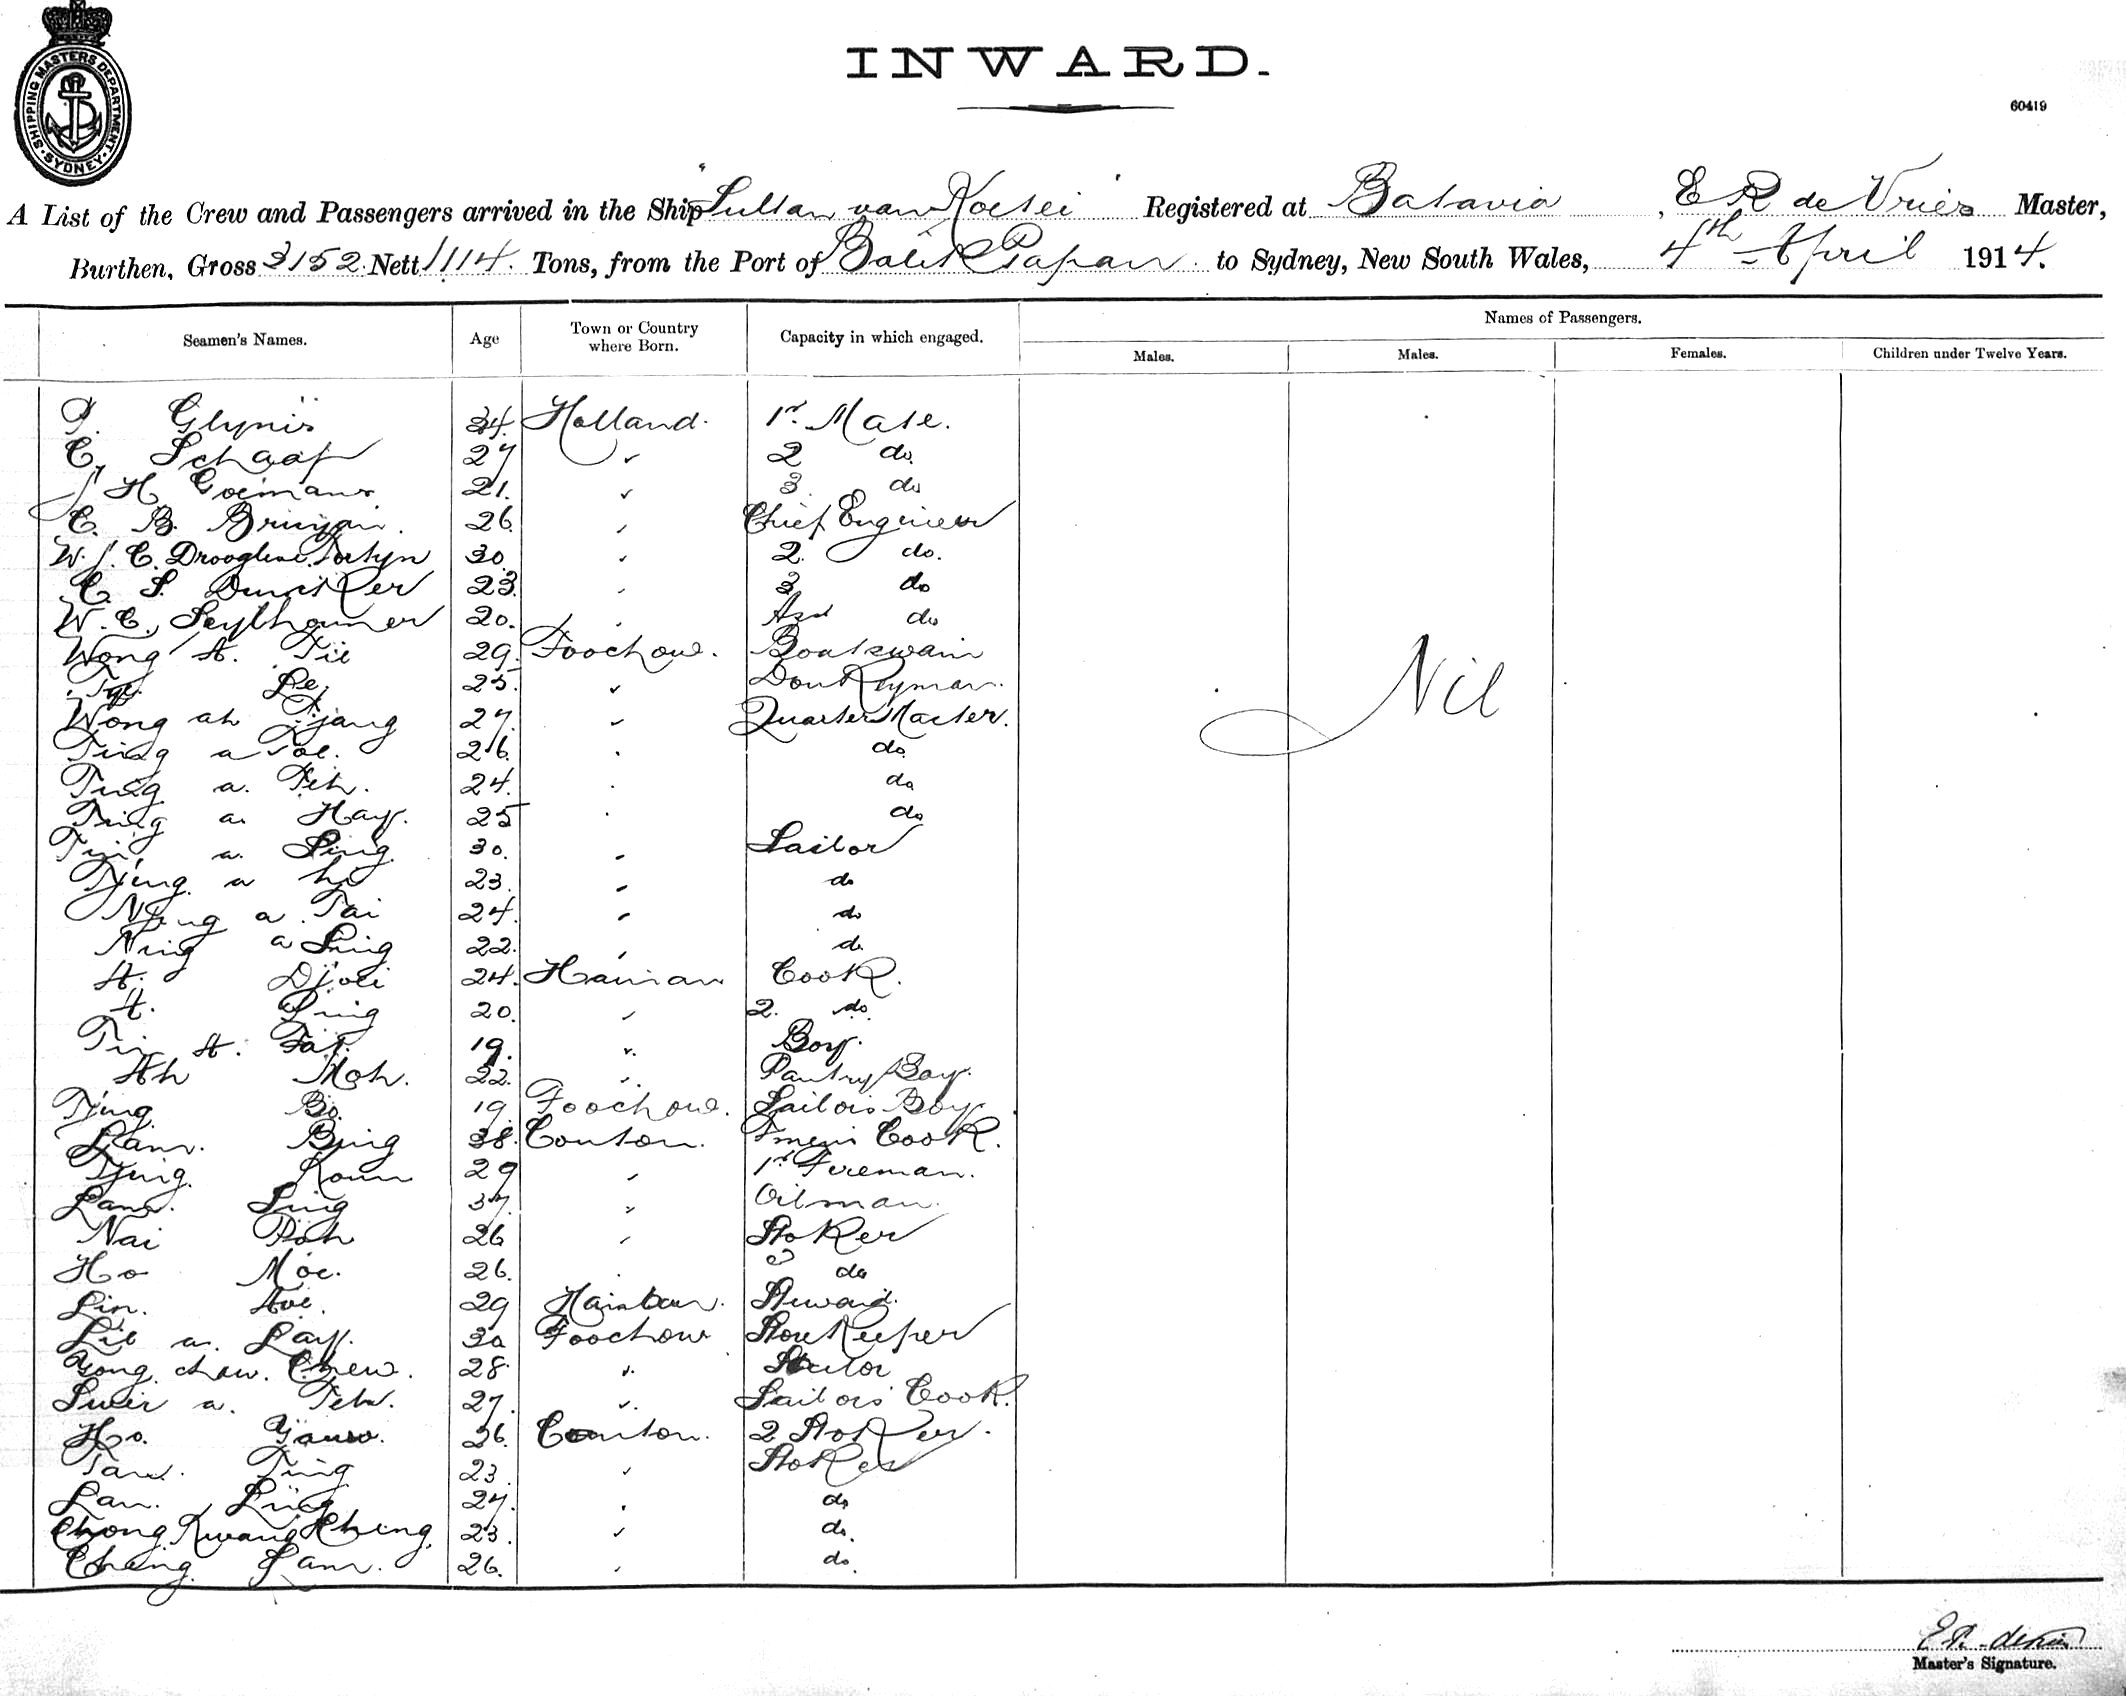 SHIPPING MASTERS DEPARTMENT
· SYDNEY ·
INWARD.
60419
A List of the Crew and Passengers arrived in the Ship "Sultan van Koetei" Registered at Batavia, E R de Vries Master,
Burthen, Gross 3152 Nett 1114. Tons, from the Port of Balik Papan to Sydney, New South Wales, 4th April 1914.
Seamen's Names. Age Town or Country where Born. Capacity in which engaged. Names of Passengers.
Males. Males. Females. Children under Twelve Years.
P. Glynis 34. Holland. 1st Mate.
C. Schaap 27 " 2 do.
J H Goemans 21. " 3 do
C. B. Bruyn. 26 " Chief Engineer
W. J. C. Droogleve Fortyn 30 " 2. do.
C. S. Duncker 23 " 3 do
W. C. 20. " Asst do
Wong A. Tii 29. Foochow. Boatswain
Le 25. " Donkeyman.
Wong ah Tjang 27. " Quarter Master.
Ting a 26. " do.
Ting a. Teh. 24. " do
Ting a. Hay. 25 " do
a. Sing 30. " Sailor
Tjeng a 23. " do
a. Tai 24. " do
Ning a Sing 22. " do
A. Djoei 24. Hainan Cook.
A. Ping 20. " 2. do.
A. 19. " Boy.
Ah Moh. 22. " Pantry Boy.
Tjing Bo. 19. Foochow. Sailors Boy
Lam. Bing 38. Conton. Fmens Cook.
Tjing. Koun 29 " 1st Fireman.
Lam. Sing 37. " Oilman.
Nai Poh 26 " Stoker
Ho Moe. 26. " do
Lin. 29 Steward.
a. Lay. 30 Foochow Storekeeper
Yong chow. Chew. 28. " Sailor
a. Teh. 27. " Sailors Cook.
Ho. 26. Conton. 2 Stoker.
Tam. Ting 23. " Stoker
Lam. Ling 27. " do
Chong Kwang Cheng. 23. " do.
Cheng Lam. 26. " do.
Nil
E R. de Vries
Master's Signature.